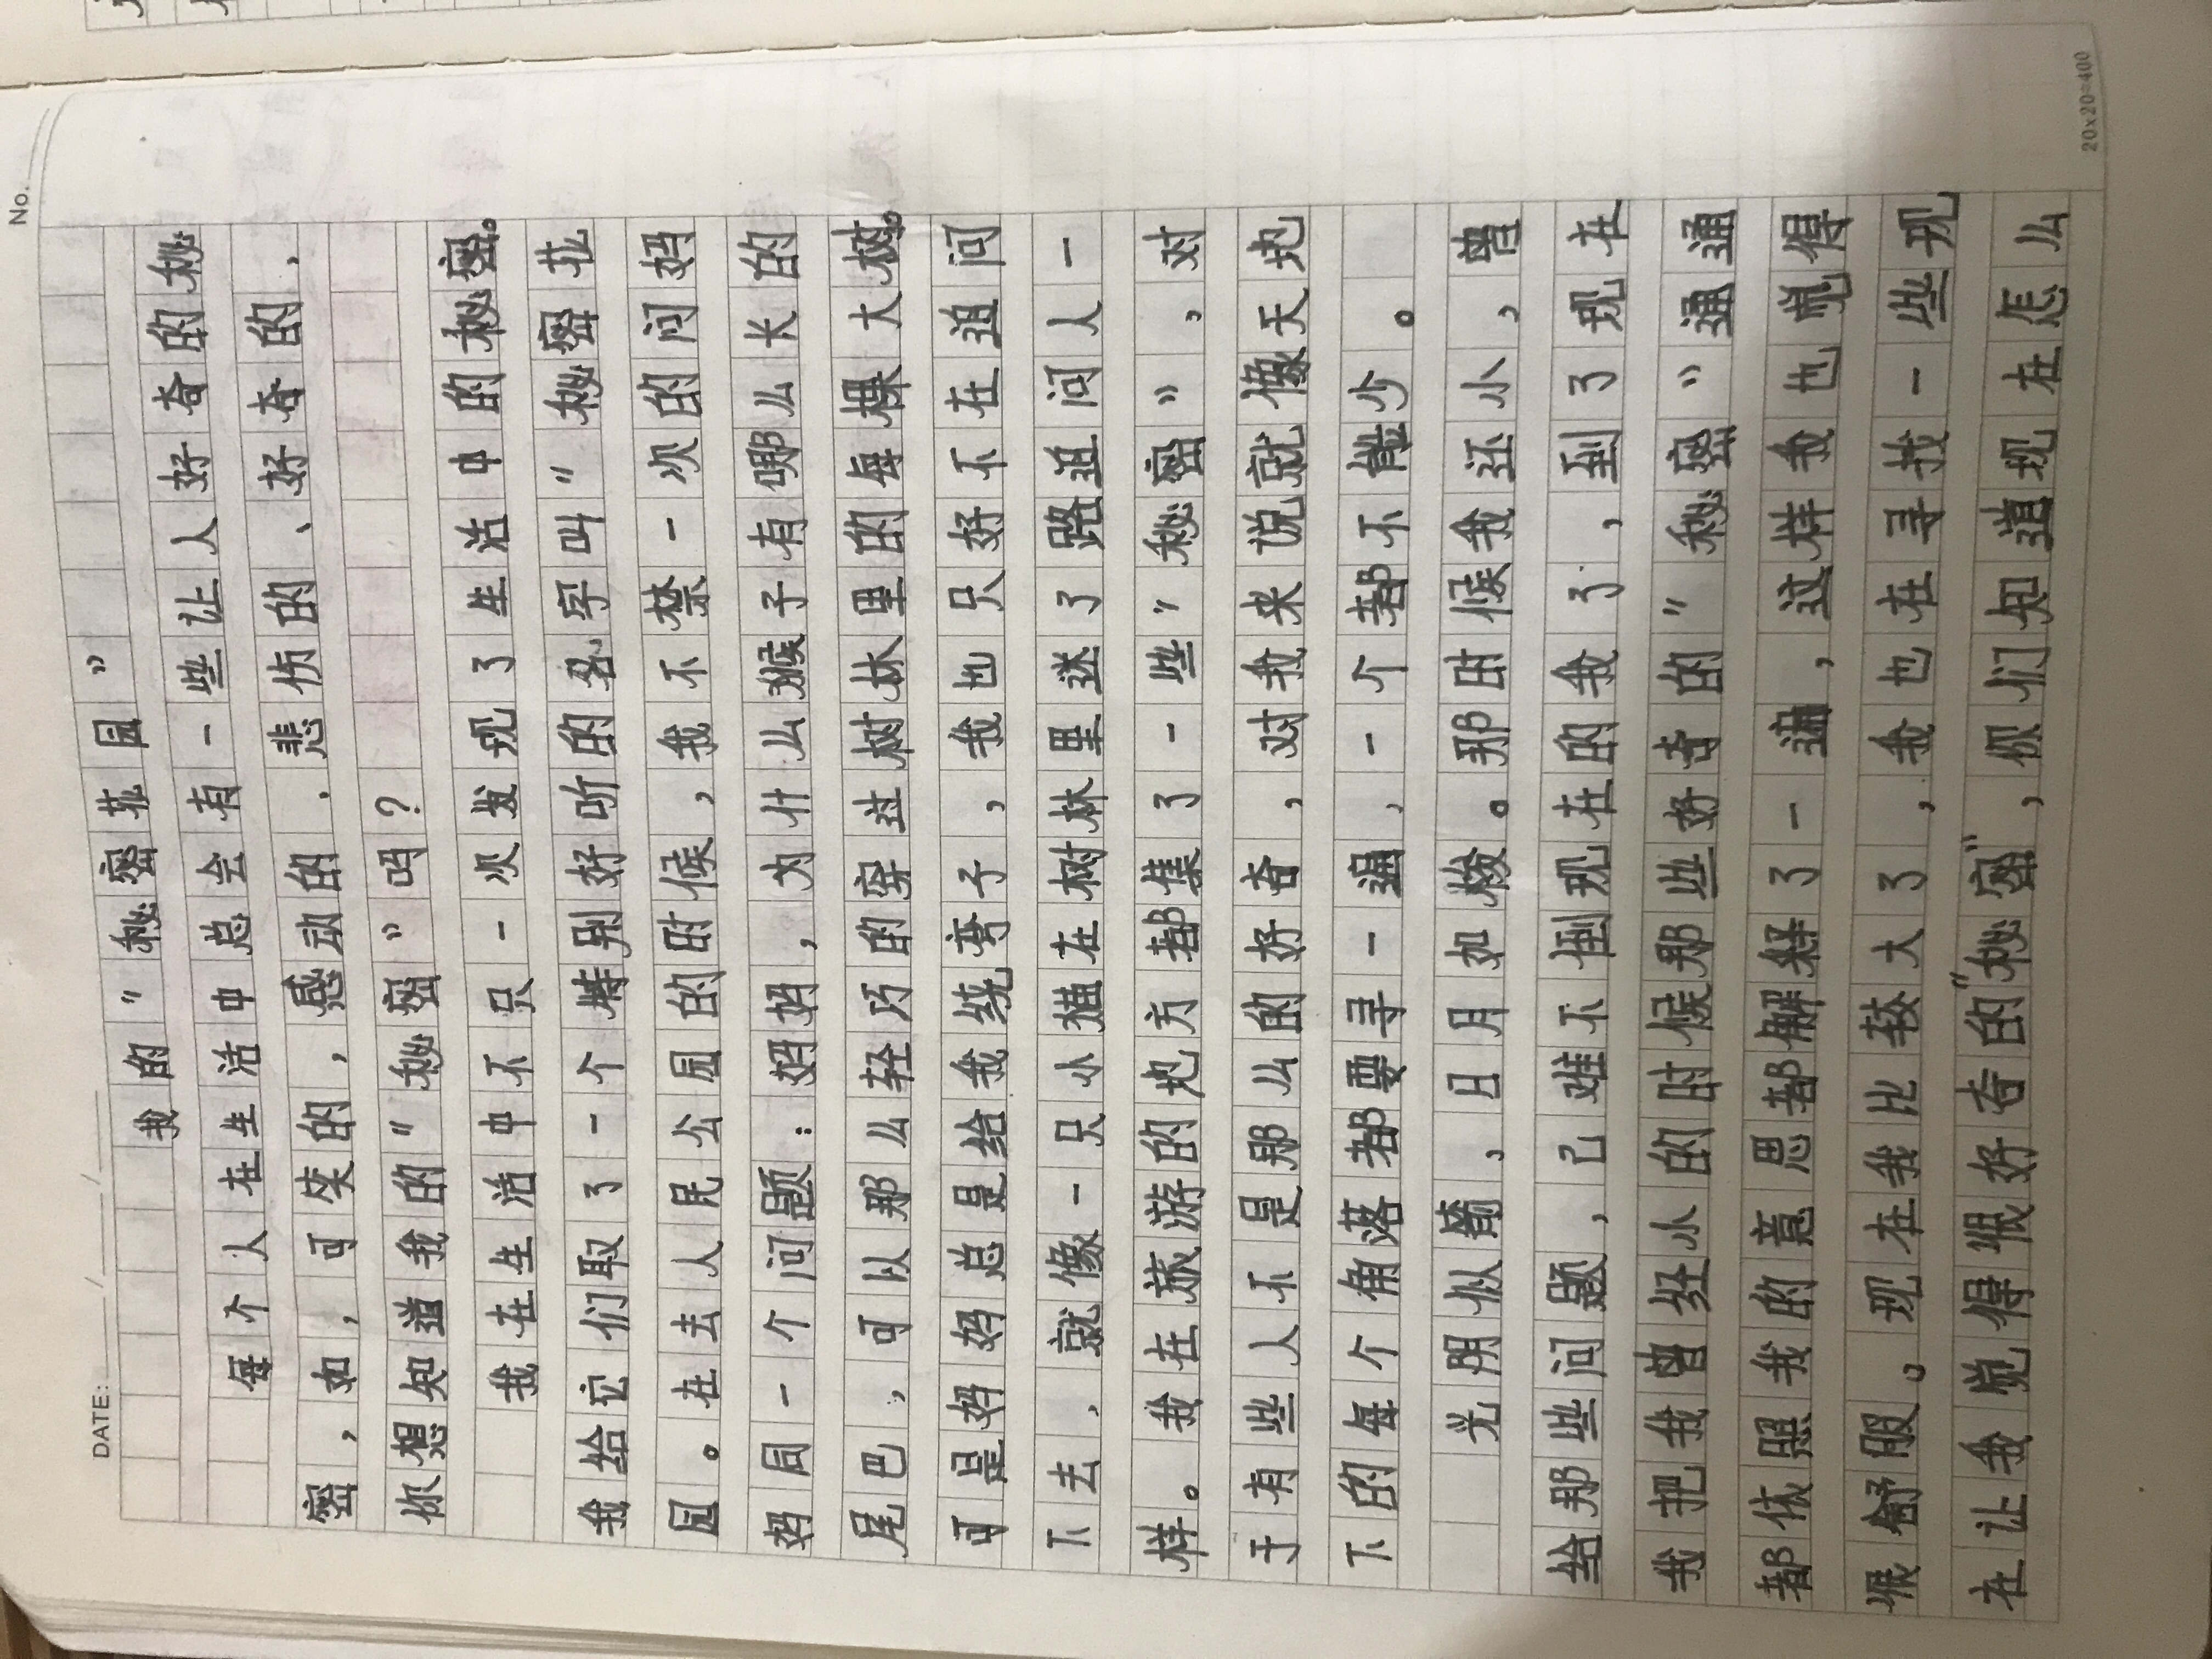 No.
DATE: / /
我的“秘密花园”
每个人在生活中总会有一些让人好奇的秘
密，如，可笑的，感动的、悲伤的、好奇的，
你想知道我的“秘密”吗？
我在生活中不只一次发现了生活中的秘密。
我给它们取了一个特别好听的名字叫“秘密花
园。在去人民公园的时候，我不禁一次的问妈
妈同一个问题：妈妈，为什么猴子有哪么长的
尾巴，可以那么轻巧的穿过树林里的每棵大树。
可是妈妈总是给我绕弯子，我也只好不在追问
下去，就像一只小猫在树林里迷了路追问人一
样。我在旅游的地方都集了一些“秘密”，对
于有些人不是那么的好奇，对我来说就像天地
下的每个角落都要寻一遍，一个都不能少。
光阴似箭，日月如梭。那时候我还小，曾
给那些问题，己难不倒现在的我了，到了现在
我把我曾经小的时候那些好奇的“秘密”通通
都依照我的意思都解释了一遍，这样我也觉得
很舒服。现在我比较大了，我也在寻找一些现
在让我觉得很好奇的“秘密”，你们知道现在怎么
20×20=400